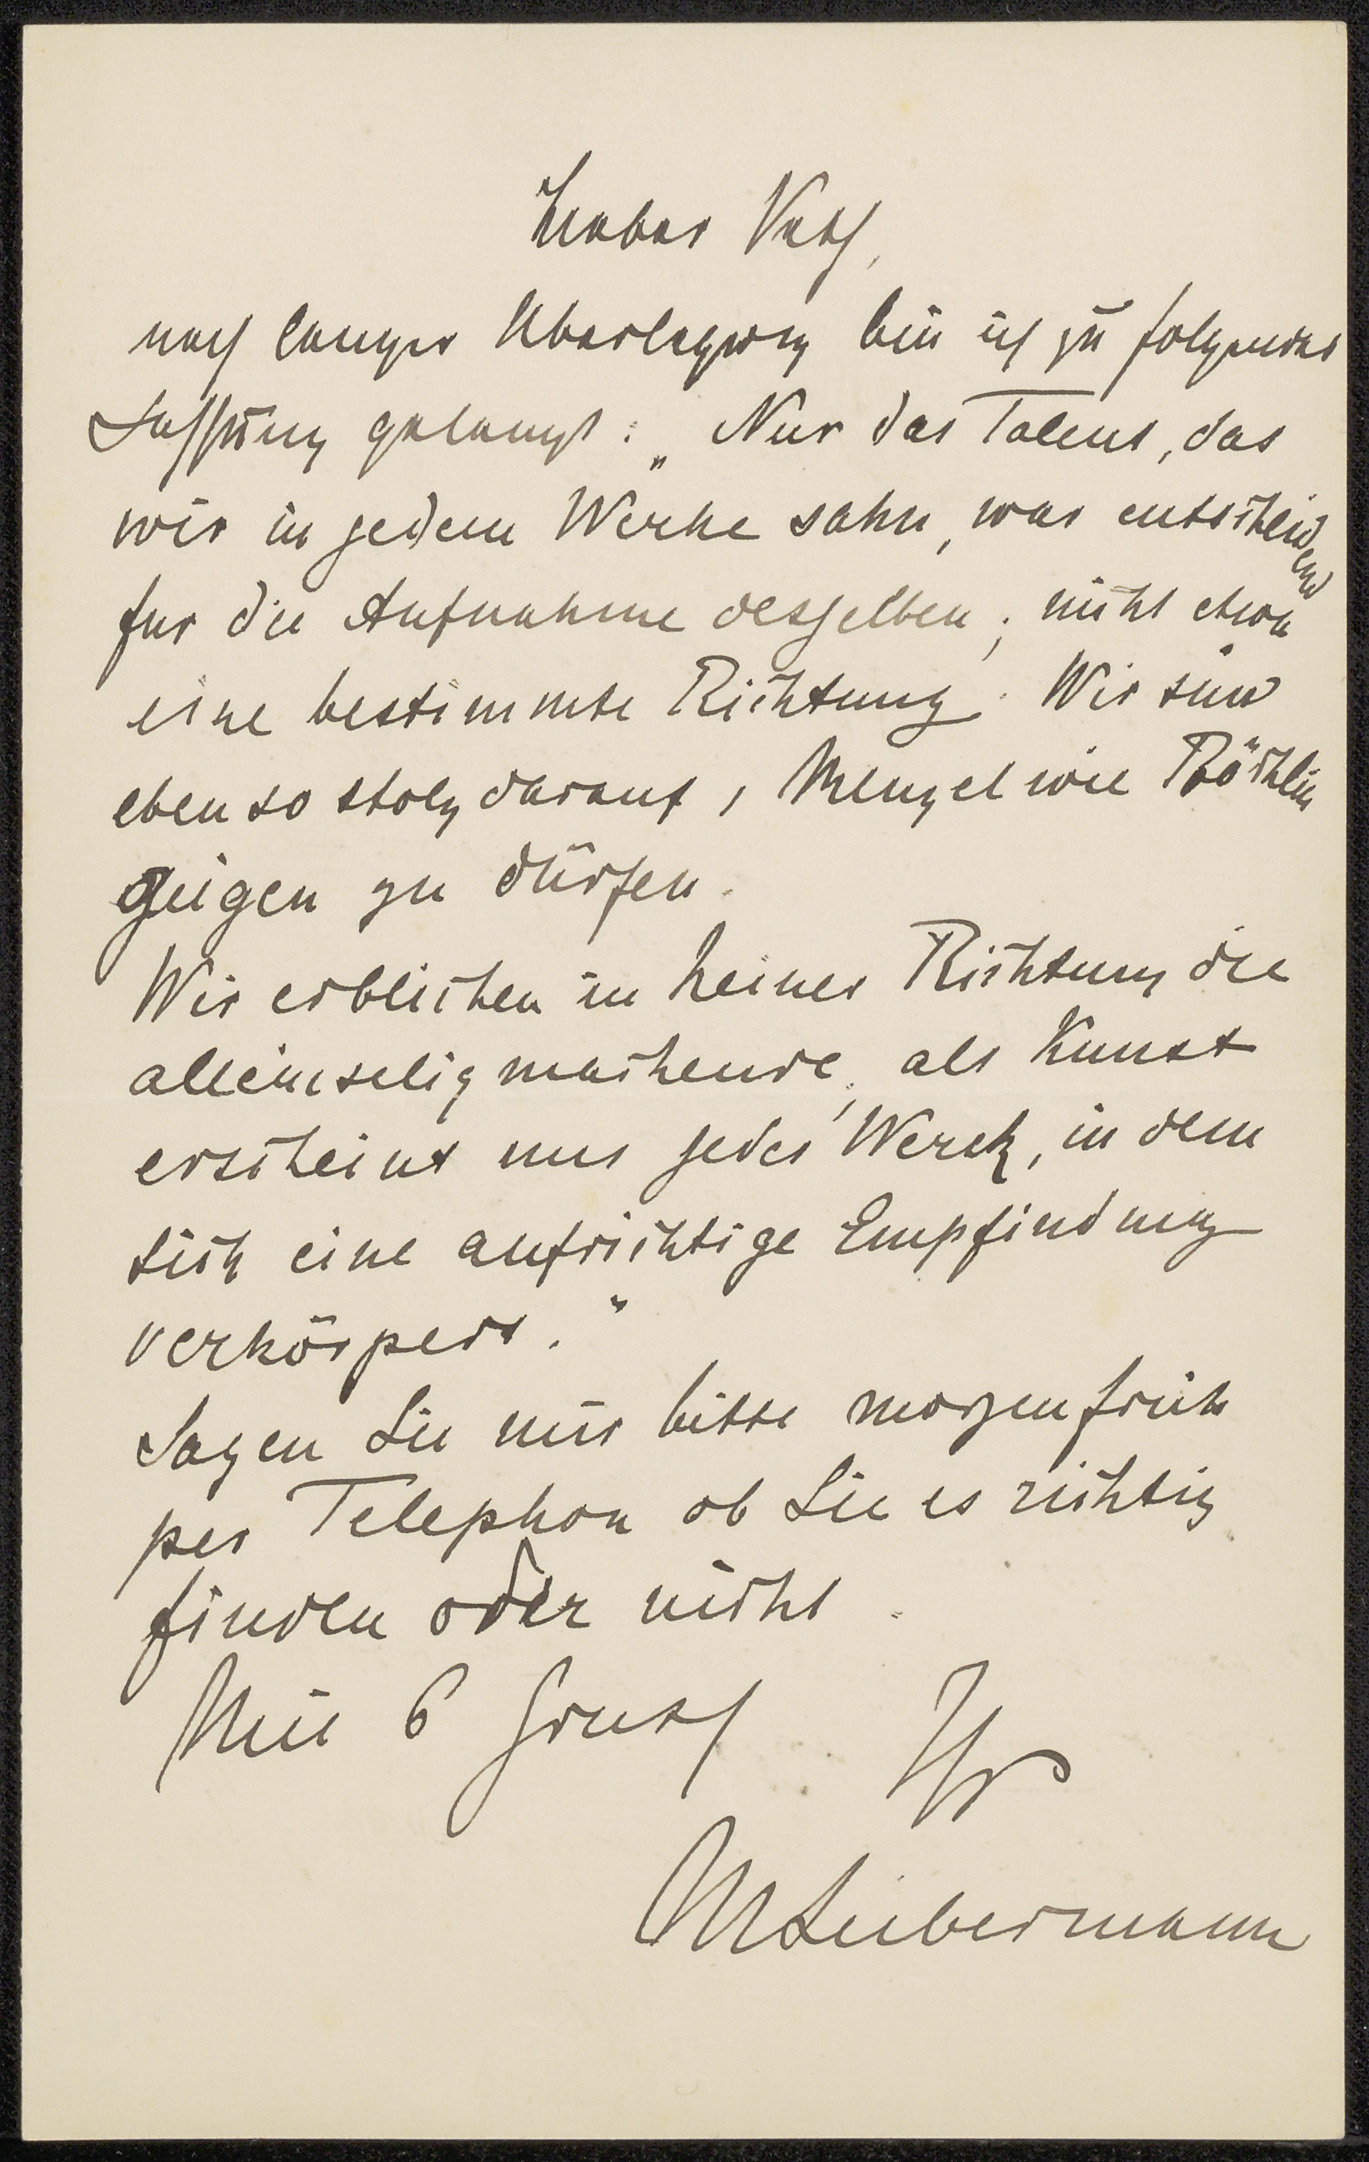 Lieber Veth,
nach langer Überlegung bin ich zu folgender
Fassung gelangt: „Nur das Talent, das
wir in jedem Werke sahn, war entscheidend
fur die Aufnahme desselben; nicht etwa
eine bestimmte Richtung. Wir sind
eben so stolz darauf, Menzel wie Böcklin
zeigen zu dürfen.
Wir erblicken in keiner Richtung die
alleinseligmachende; als Kunst
erscheint uns jedes Werck, in dem
sich eine aufrichtige Empfindung
verkörpert."
Sagen Sie mir bitte morgen früh
per Telephon ob Sie es richtig
finden oder nicht.
Mit b Grusz Ihr
MLiebermann